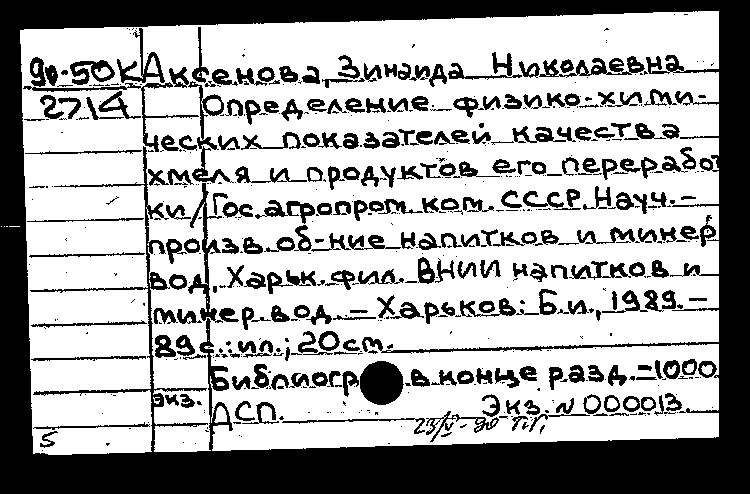 90-50К Аксенова, Зинаида Николаевна
2714 Определение физико-хими-
ческих показателей качества
хмеля и продуктов его переработ
ки / Гос. агропром. ком. СССР. Науч.-
произв. об-ние напитков и минер
вод, Харьк. фил. ВНИИ напитков и
минер. вод. — Харьков: Б.и., 1989. —
89 с.: ил.; 20 см.
Библиогр в конце разд. = 1000
экз.
ДСП. Экз. № 000013.
23/V - 90
5